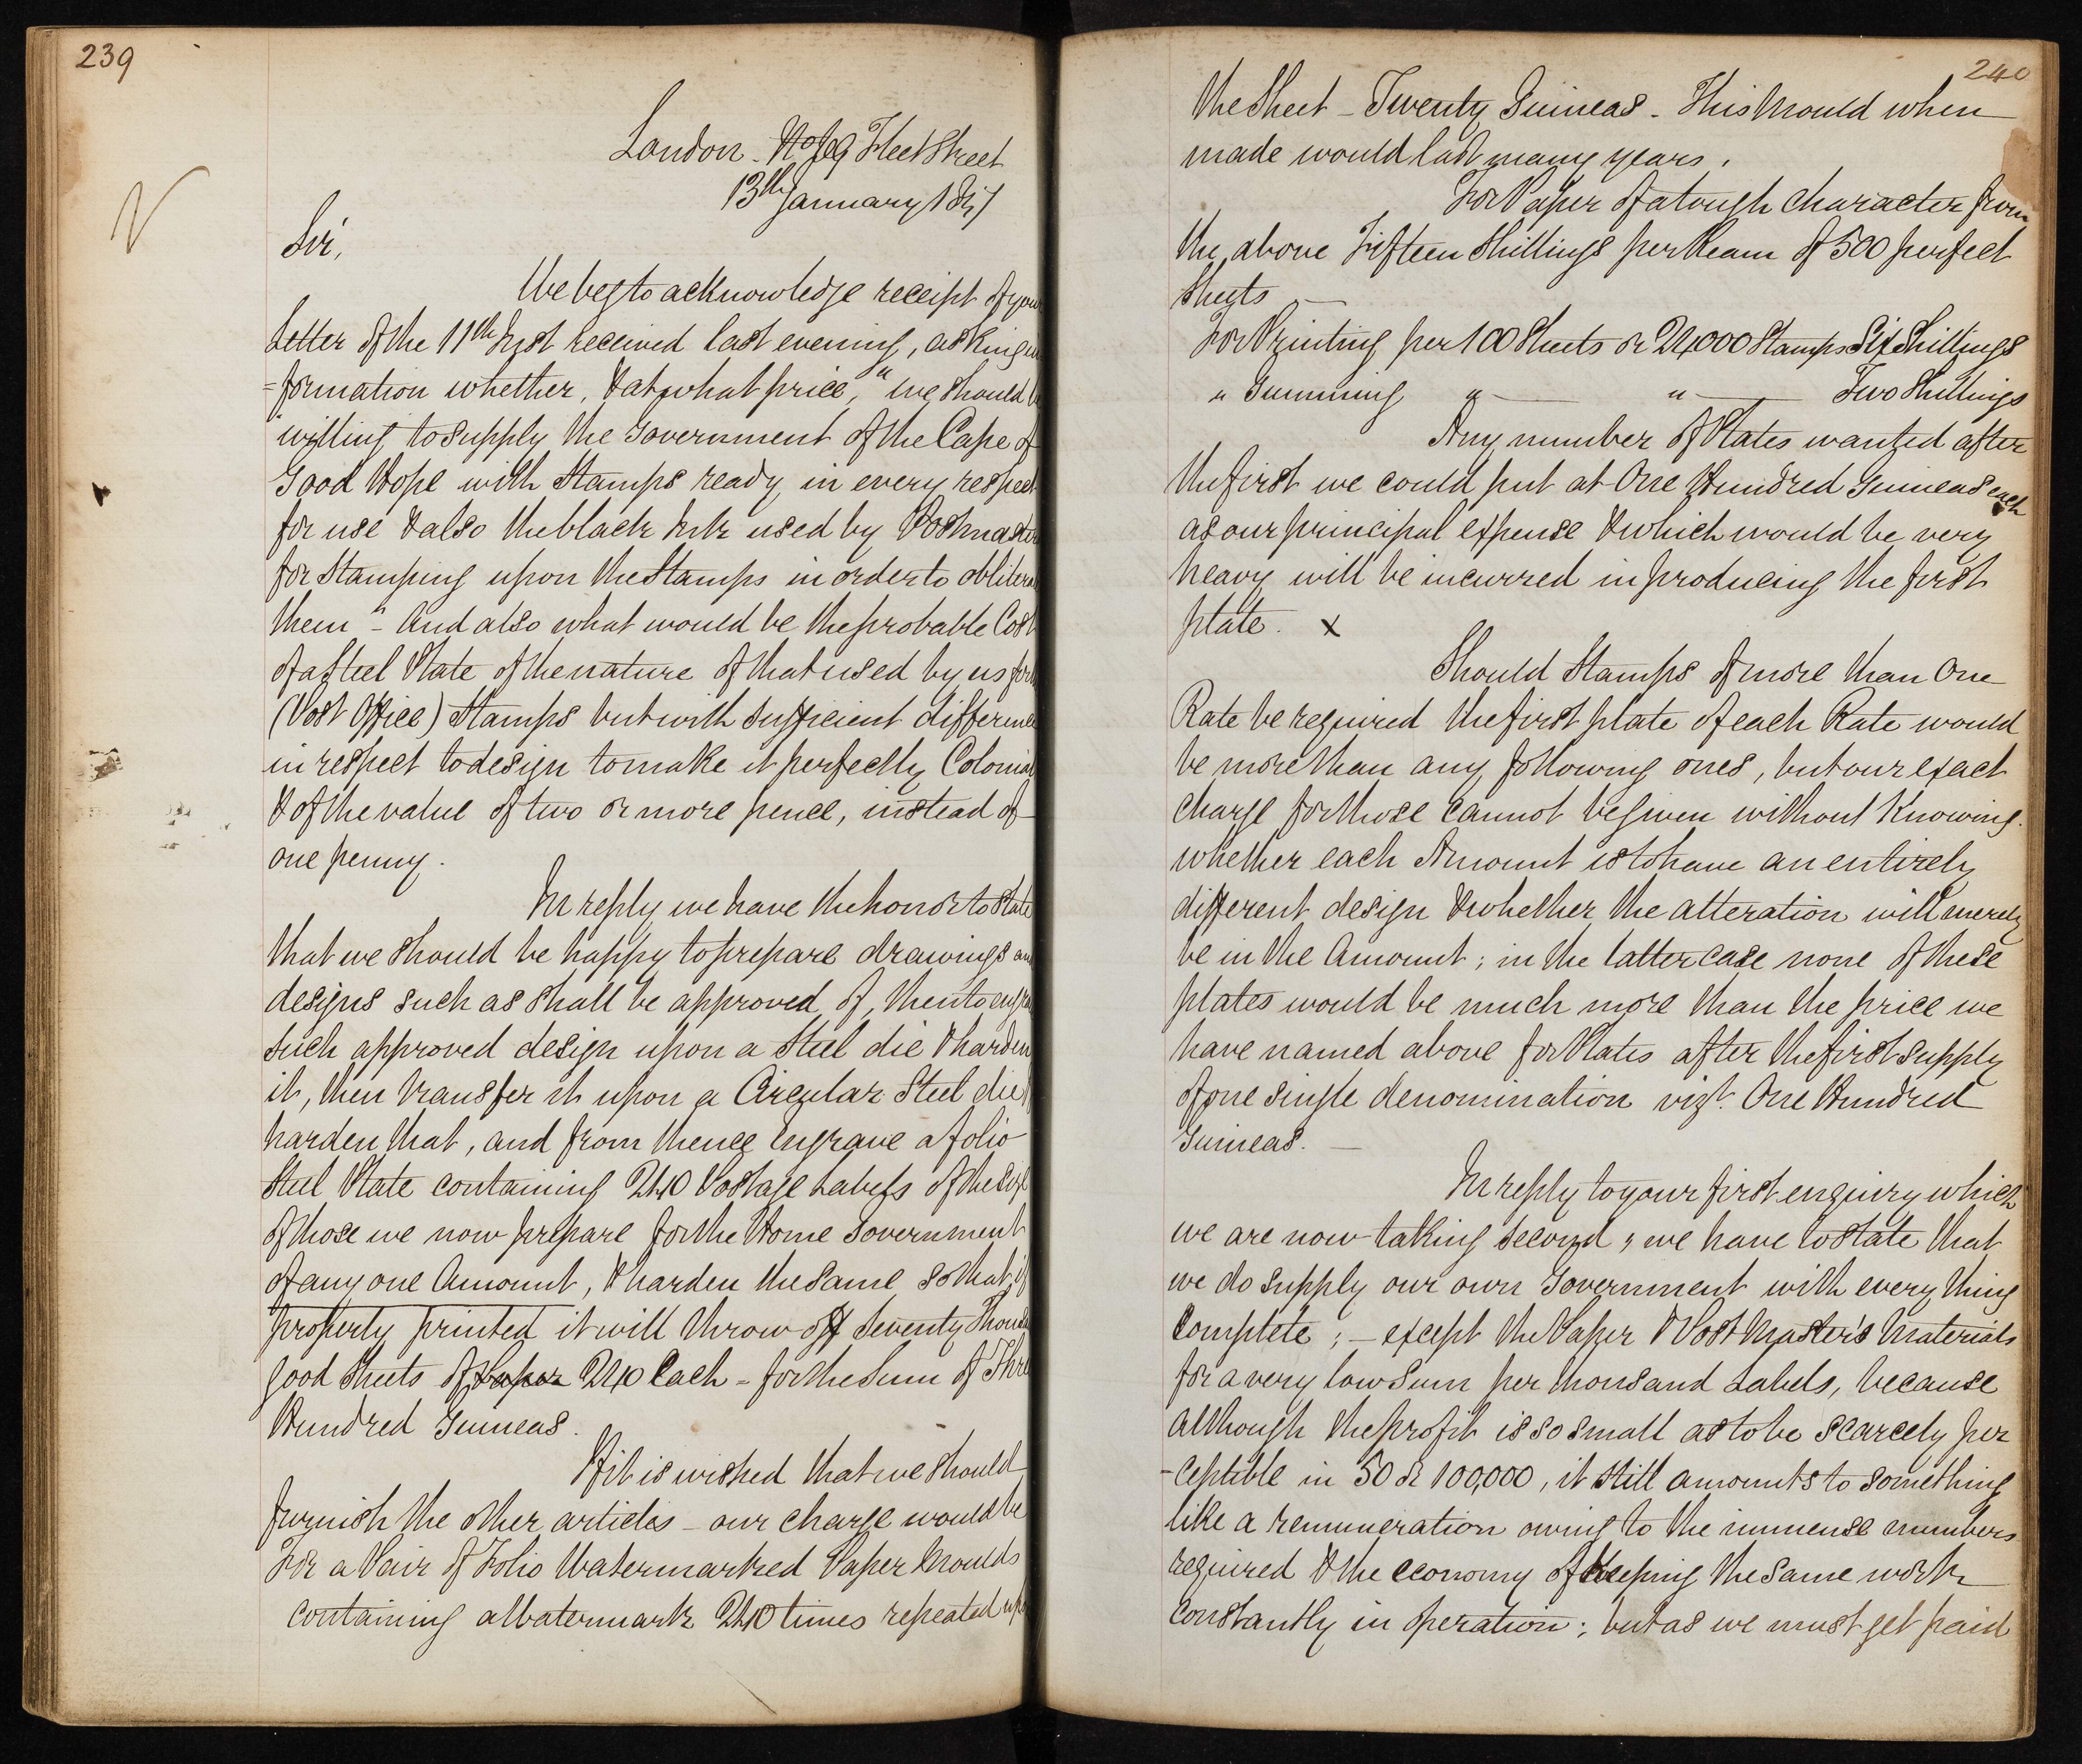 239
London - No 69 Fleet Street
13th January 1847
Sir,
We beg to acknowledge receipt of your
Letter of the 11th Inst received last evening, asking in
=formation whether, & at what price, " we should be
willing to supply the Government of the Cape of
Good Hope with Stamps ready in every respect
for use & also the black Ink used by Postmasters
for Stamping upon the Stamps in order to obliterate
them" - And also what would be the probable Cost
of a Steel Plate of the nature of that used by us for the
(Post Office) Stamps but with sufficient difference
in respect to design to make it perfectly Colonial
& of the value of two or more pence, instead of
one penny.
In reply we have the honor to State
that we should be happy to prepare drawings and
designs such as shall be approved of, then to engrave
such approved design upon a Steel die & harden
it, then transfer it upon a Circular Steel die
harden that, and from thence Engrave a folio
Steel Plate containing 240 Postage Labels of the size
of those we now prepare for the Home Government
of any one Amount, & harden the same so that, if
properly printed it will throw off Seventy Thousand
good Sheets of Paper 240 Each - for the Sum of Three
Hundred Guineas.
If it is wished that we should
furnish the other articles - our charge would be
For a Pair of Folio Watermarked Paper Moulds
containing a Watermark 240 times repeated upon
240
the Sheet - Twenty Guineas - This Mould when
made would last many years.
For Paper of a tough Character from
the above Fifteen Shillings per Ream of 500 perfect
Sheets -
For Printing per 100 Sheets or 24,000 Stamps Six Shillings
" Gumming " — " — Two Shillings
Any number of Plates wanted after
the first we could put at One Hundred Guineas each
as our principal expense & which would be very
heavy will be incurred in producing the first
plate. x
Should Stamps of more than One
Rate be required the first plate of each Rate would
be more than any following ones, but our exact
charge for those cannot be given without Knowing
whether each Amount is to have an entirely
different design & whether the alteration will merely
be in the Amount; in the latter case none of these
plates would be much more than the price we
have named above for Plates after the first supply
of one single denomination vizt. One Hundred
Guineas. —
In reply to your first enquiry which
we are now taking second, we have to State that
we do supply our own Government with every thing
Complete; - except the Paper & Post Master's Materials
for a very low Sum per thousand Labels, because
although the profit is so small as to be scarcely per
-ceptible in 50 or 100,000, it still amounts to something
like a remuneration owing to the immense numbers
required & the economy of Keeping the same work
constantly in operation; but as we must get paid